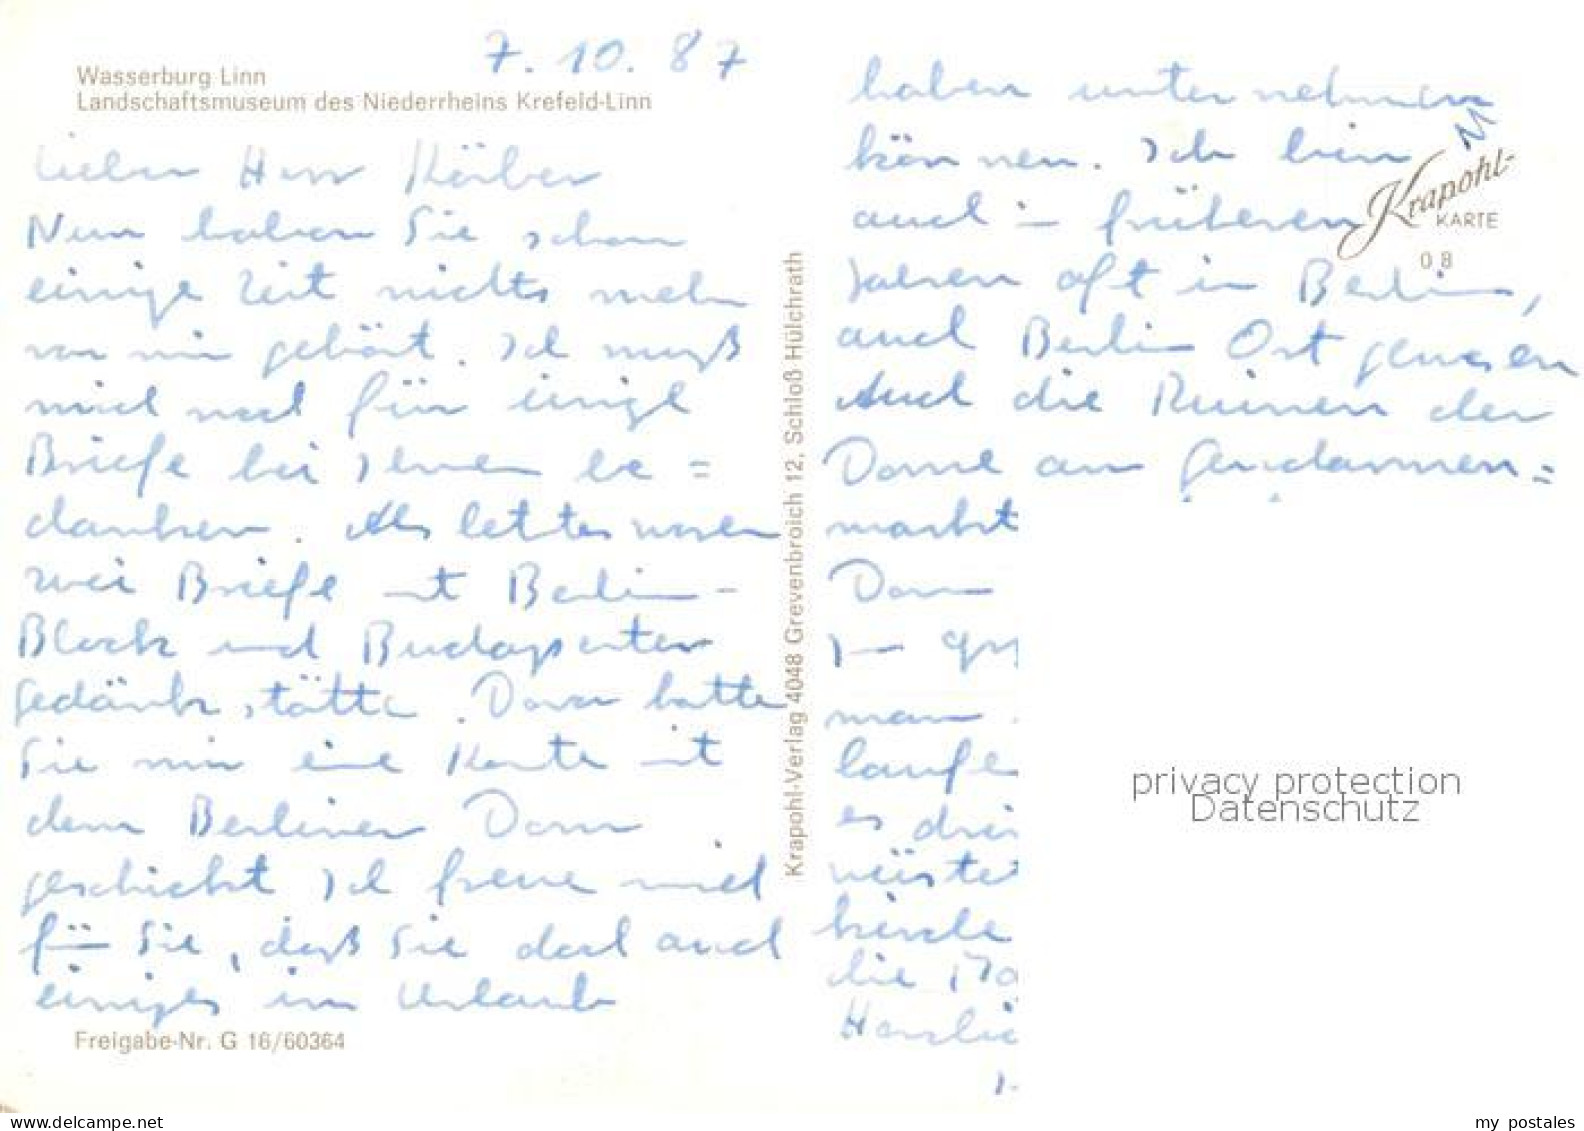 7.10.87
Wasserburg Linn
Landschaftsmuseum des Niederrheins Krefeld-Linn
Lieber Herr Körber
Nun haben Sie schon
einige Zeit nichts mehr
von mir gehört. Ich muß
mich noch für einige
Briefe bei Ihnen be=
danken. Als letztes waren
zwei Briefe mit Berlin-
Block und Budapester
gedänkstätte. Davor hatte
Sie mir eine Karte mit
dem Berliner Dom
geschickt Ich freue mich
für Sie, daß Sie doch auch
einiges im Urlaub
Freigabe-Nr. G 16/60364
Krapohl-Verlag 4048 Grevenbroich 12, Schloß Hülchrath
haben unternehmen
können. Ich bin
auch in früheren
Jahren oft in Berlin,
auch Berlin Ost gewesen
Auch die Ruinen der
Dome am Gendarmen=
markt
Dom
man
laufe
es
die
Krapohl-
KARTE
08
privacy protection
Datenschutz
my postales